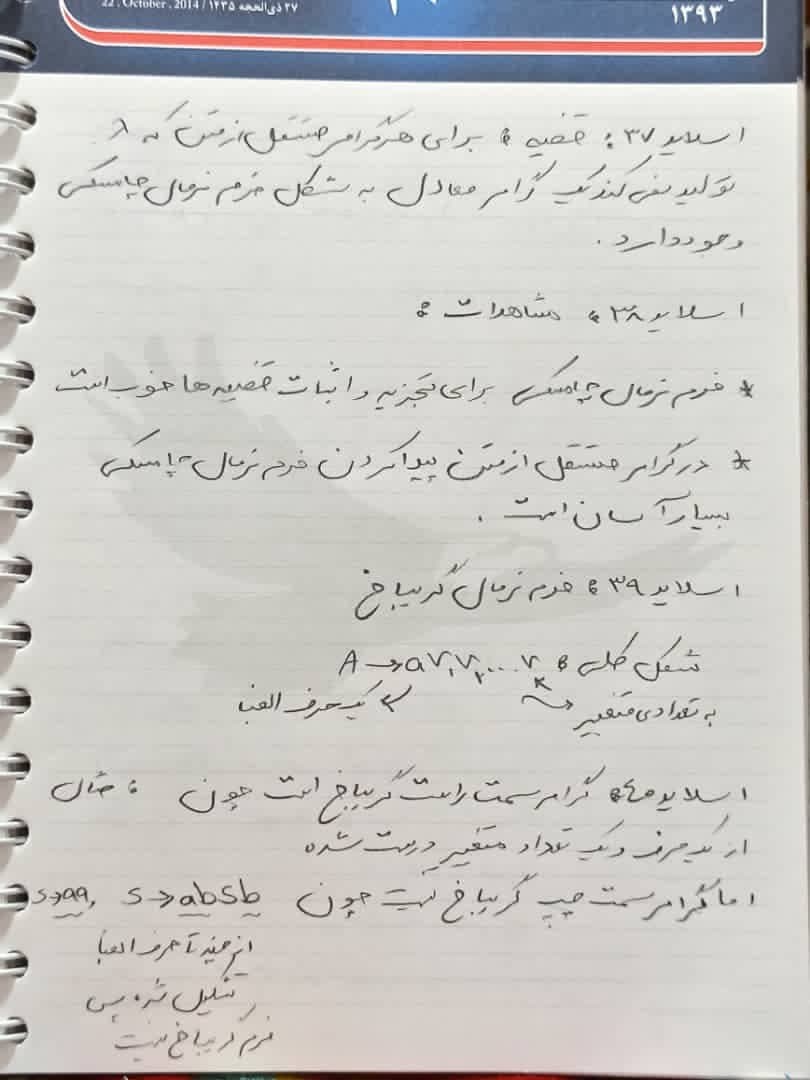 22 . October . 2014 / ۲۷ ذی‌الحجه ۱۴۳۵
۱۳۹۳
اسلاید ۳۷ : قضیه : برای هر گرامر مستقل از متن که λ
تولید نمی کند یک گرامر معادل به شکل فرم نرمال چامسکی
وجود دارد .
اسلاید ۳۸ : مشاهدات :
* فرم نرمال چامسکی برای تجزیه و اثبات قضیه ها خوب است
* در گرامر مستقل از متن پیدا کردن فرم نرمال چامسکی
بسیار آسان است .
اسلاید ۳۹ : فرم نرمال گریباخ
شکل کلی : A → a V₁ V₂ ... Vₖ
به تعدادی متغییر یک حرف الفبا
اسلاید ۴۰ : گرامر سمت راست گریباخ است چون : مثال
از یک حرف و یک تعداد متغییر درست شده
اما گرامر سمت چپ گریباخ نیست چون S → abSb , S → aa
از چند تا حرف الفبا
تشکیل شده پس
فرم گریباخ نیست